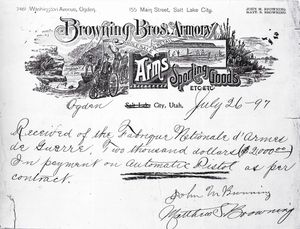 2461 Washington Avenue, Ogden. 155 Main Street, Salt Lake City. JOHN M. BROWNING. MATT. S. BROWNING.
Browning Bros. Armory
Arms
Sporting Goods
ETC. ETC.
Ogden Salt Lake City, Utah, July 26-97
Received of the Fabrique Nationale d'Armes
de Guerre, Two thousand dollars ($2000.00)
In payment on Automatic Pistol as per
contract.
John M Browning
Matthew S Browning